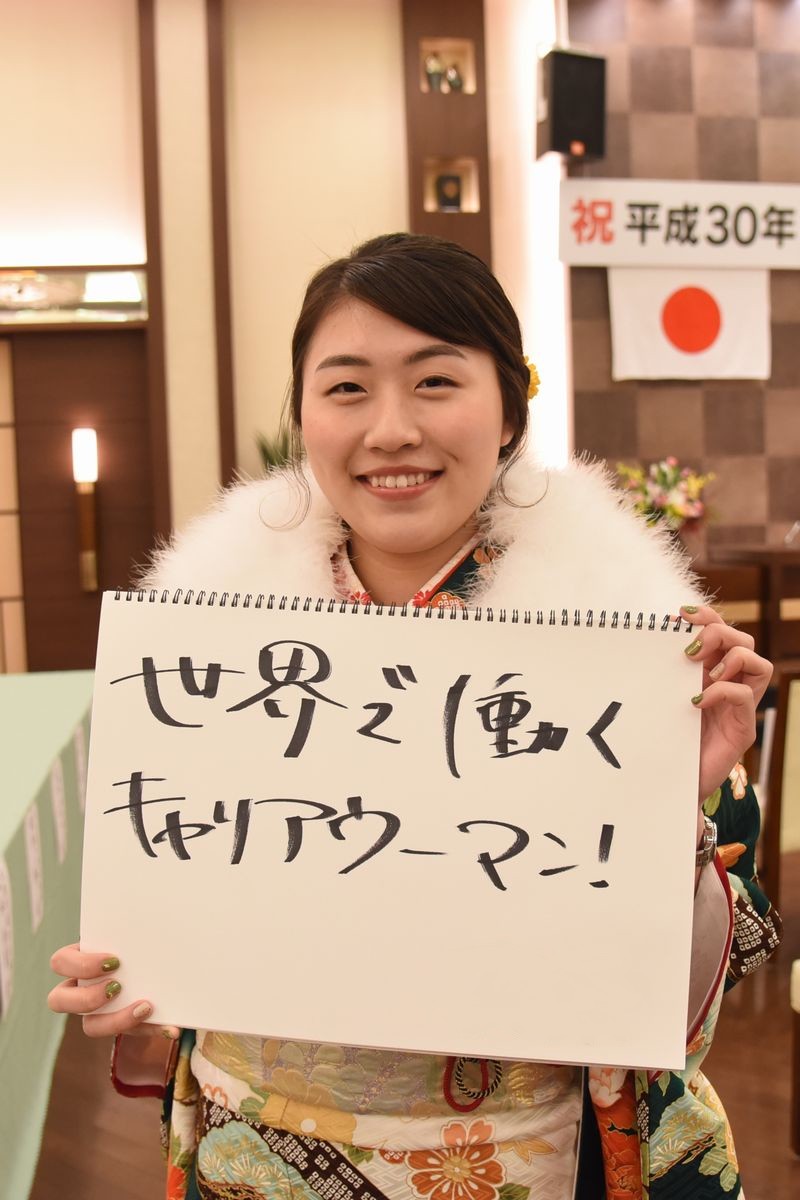 祝 平成30年
世界で働く
キャリアウーマン!